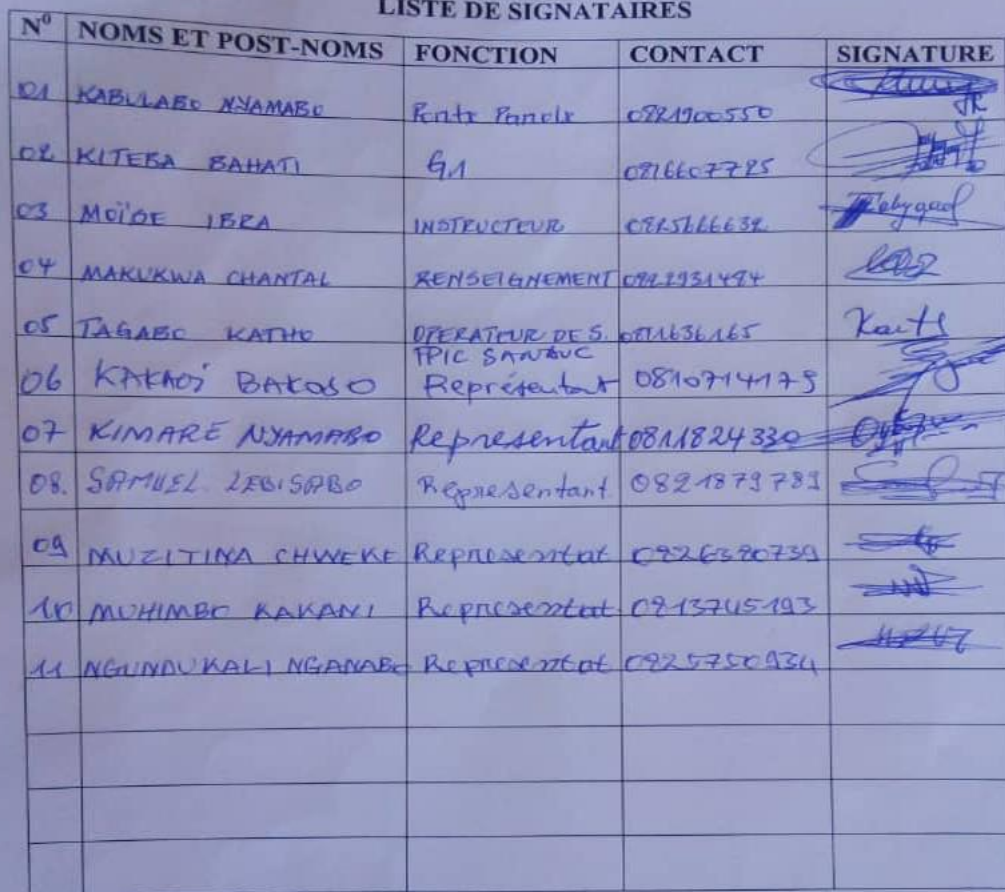 LISTE DE SIGNATAIRES
N° NOMS ET POST-NOMS FONCTION CONTACT SIGNATURE
01 KABULABO NYAMABO 0821900550
02 KITEBA BAHATI G1 0816607725
03 MOÏSE IBRA INSTRUCTEUR
04 MAKUKWA CHANTAL RENSEIGNEMENT
05 TAGABO KATHO OPERATEUR DE S.
06 KAKAOÏ BAKOSO Représentant 0810714179
07 KIMARE NYAMABO Representant 0811824330
08. SAMUEL LEBISABO Representant 0821879789
09 MUZITINA CHWEKE Representat
10 MUHIMBO KAKANI Representat 0813745193
11 NGUNDUKALI NGANABO Representat 0825750934